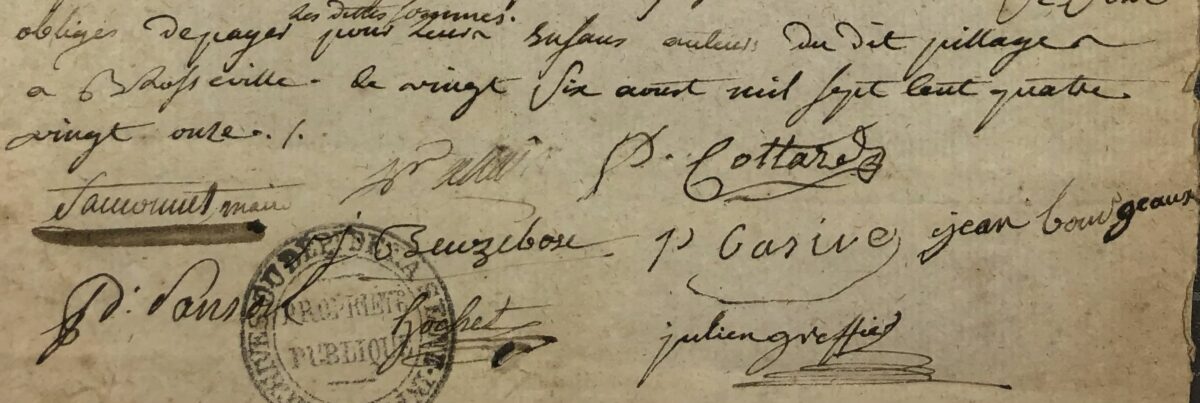 les dittes sommes.
obligés de payer pour leurs Enfans auteurs du dit pillage
a Brosseville. le vingt six aoust mil sept Cent quatre
vingt onze./.
P. Cottard
maire
J Beuzebosc P Carive jean bourgeaux
Hochet julien greffier
ARCHIVES DU DEP. DE LA SEINE-INF.
PROPRIÉTÉ
PUBLIQUE